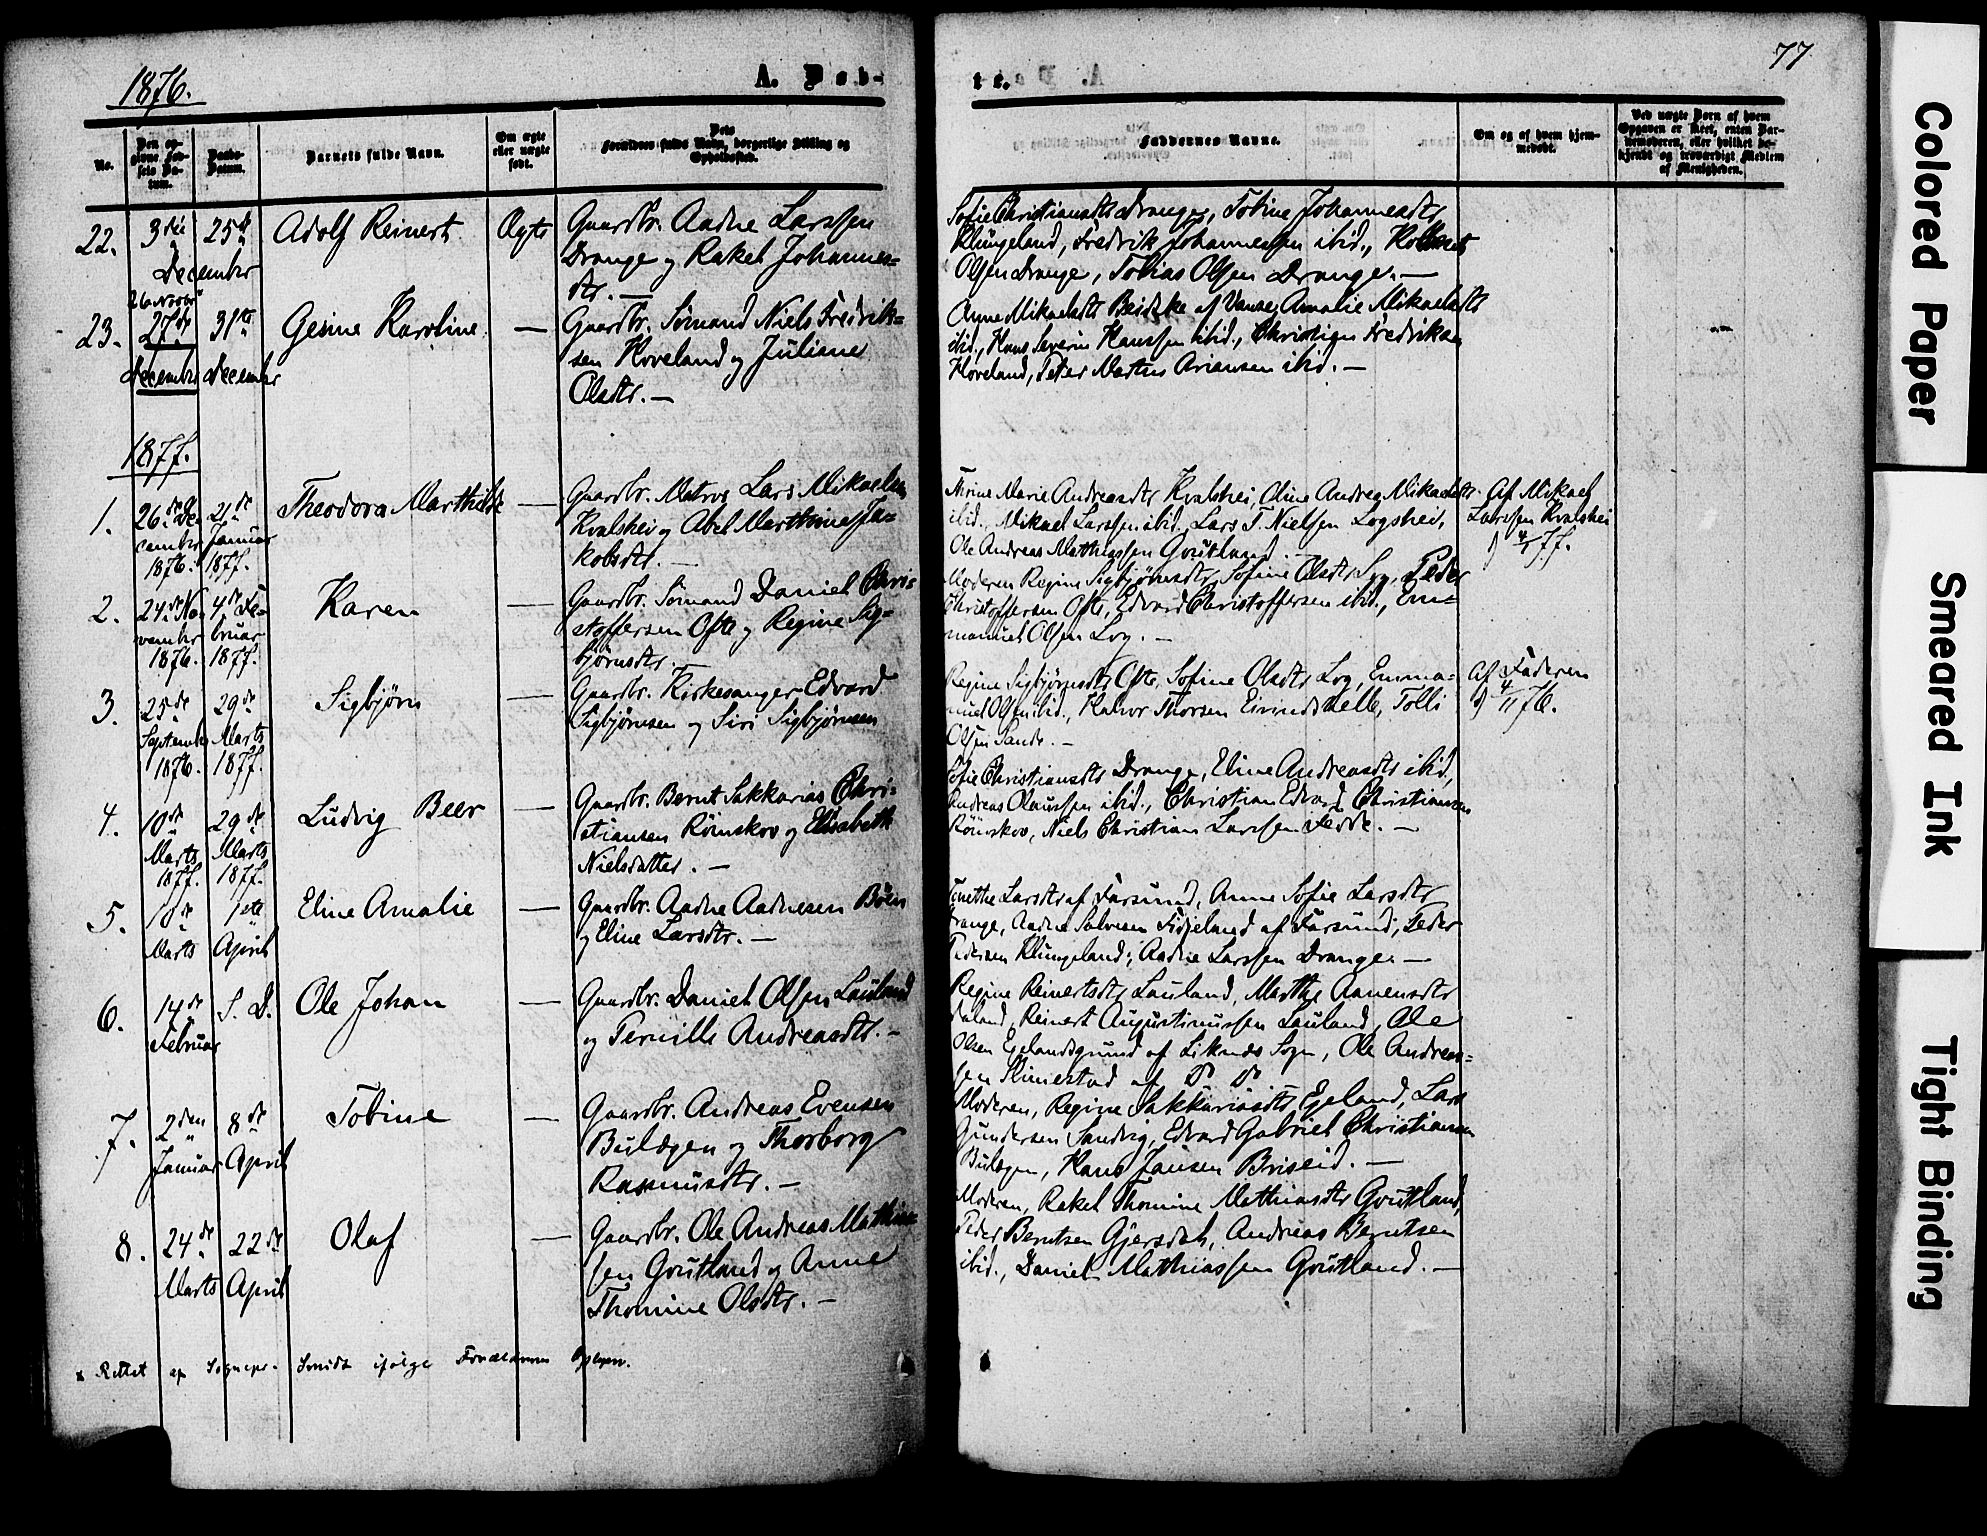 1876.
A. Døb-
te.
77
No.
Den opgivne Fødsels Datum.
Daabs-Datum.
Barnets fulde Navn.
Om ægte eller uægte født.
Dets Forældres fulde Navn, borgerlige Stilling og Opholdssted.
Faddernes Navne.
Om og af hvem hjemmedøbt.
Ved uægte Børn af hvem Opgaven er skeet, enten Barnemoderen, eller hvilket bekjendt og troværdigt Medlem af Menigheden.
22.
3die December
25de
Adolf Reinert
Ægte
Gaardbr. Aadne Larssen
Drange og Rakel Johannes=
dtr. —
Sofie Christiansdtr Drange, Tobine Johannesdtr
Klungeland, Fredrik Johannessen ibid.,
Olsen Drange, Tobias Olsen Drange. —
23.
26 Novbr
27de December
31te December
Gesine Karoline
—
Gaardbr. Sømand Niels Fredrik=
sen Hoveland og Juliane
Olsdtr. —
Anne Mikaelsdtr Beidske af Vanse, Amalie Mikaelsdtr
ibid., Hans Severin Hanssen ibid., Christian Fredriksen
Hoveland, Peter Martin Ariansen ibid. —
1877.
1.
26de December 1876.
21de Januar 1877.
Theodora Marthilde
—
Gaardbr. Matros Lars Mikaelsen
Kvalshei og Abel Marthine Ja-
kobsdtr. —
Thrine Marie Andreasdtr Kvalshei, Oline Andrea Mikaelsdtr
ibid., Mikael Larssen ibid., Lars T. Nielsen Logshei,
Ole Andreas Matthiassen Goutland. —
Af Mikael
Larssen Kvalshei
4/1 77.
2.
24de November 1876.
4de Februar 1877.
Karen
—
Gaardbr. Sømand Daniel Chris
stoffersen Ofte og Regine Sig-
bjørnsdtr. —
Moderen Regine Sigbjørnsdtr, Sofine Olsdtr Log, Peder
Christoffersen Ofte, Edvard Christoffersen ibid., Em=
manuel Olsen Log. —
3.
25de September 1876.
29de Marts 1877.
Sigbjørn
—
Gaardbr. Kirkesanger Edvard
Sigbjørnsen og Siri Sigbjørnsen
Regine Sigbjørnsdtr Ofte, Sofine Olsdtr Log, Emma=
nuel Olsen ibid., Halvor Thorsen Eivindshelle, Tolli
Olsen Sande. —
Af Faderen
4/11 76.
4.
10de Marts 1877.
29de Marts 1877.
Ludvig Beer
—
Gaardbr. Bernt Sakkarias Chri-
stiansen Rømskov og Elisabeth
Nielsdatter. —
Sofie Christiansdtr Drange, Eline Andreasdtr ibid.,
Andreas Olaussen ibid., Christian Edvard Christiansen
Rømskov, Niels Christian Larssen Fedde. —
5.
10de Marts
1ste April
Eline Amalie
—
Gaardbr. Aadne Aadnesen Bøen
og Eline Larsdtr. —
Tonette Larsdtr af Farsund, Anne Sofie Larsdtr
Drange, Aadne Salvesen Fidjeland af Farsund, Peder
Pedersen Klungeland, Aadne Larssen Drange. —
6.
14de Februar
S. D.
Ole Johan
—
Gaardbr. Daniel Olsen Lauland
og Pernille Andreasdtr. —
Regine Reinertsdtr Lauland, Marthe Aanensdtr
Reinert Augustinussen Lauland, Ole
Olsen Egelandsgrund af Liknes Sogn, Ole Andreas=
sen Slimestad af Do Do
7.
2den Januar
8de April
Tobine
—
Gaardbr. Andreas Evensen
Bulægen og Thorborg
Rasmusdtr. —
Moderen, Regine Sakkariasdtr Egeland, Lars
Gundersen Sandvig, Edvard Gabriel Christiansen
Bulægen, Hans Jansen Briseid. —
8.
24de Marts
22de April
Olaf
—
Gaardbr. Ole Andreas Mathias
sen Goutland og Anne
Thomine Olsdtr. —
Moderen, Rakel Thomine Mathiasdtr Goutland,
Peder Berntsen Gjersdal, Andreas Berntsen
ibid., Daniel Mathiassen Goutland. —
x Rettet af Sognepr. Smidt ifølge Forældrenes Opgave.
Colored Paper
Smeared Ink
Tight Binding